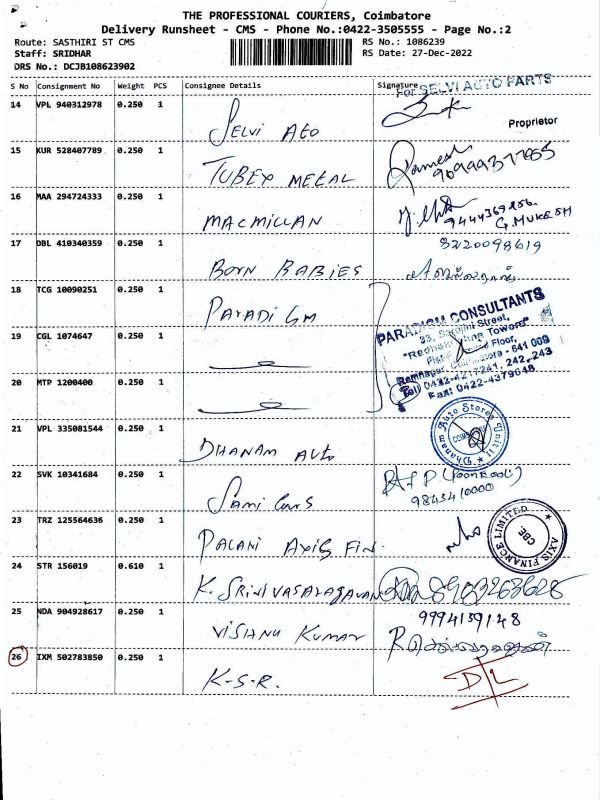 THE PROFESSIONAL COURIERS, Coimbatore
Delivery Runsheet - CMS - Phone No.:0422-3505555 - Page No.:2
Route: SASTHIRI ST CMS
RS No.: 1086239
Staff: SRIDHAR
RS Date: 27-Dec-2022
DRS No.: DCJB108623902
S No Consignment No Weight PCS Consignee Details Signature
For SELVI AUTO PARTS
14 VPL 940312978 0.250 1
SELVI Ato
Proprietor
15 KUR 528407789 0.250 1
TUBEX METAL
Ramesh
16 MAA 294724333 0.250 1
MACMILLAN
G. MUKESH
17 DBL 410340359 0.250 1
BORN BABIES
18 TCG 10090251 0.250 1
PARADIGM
PARADIGM CONSULTANTS
33, Sarojini Street,
Floor,
Ramnagar, Coimbatore - 641 009
Tel: 0422-4217241, 242, 243
Fax: 0422-4379648
19 CGL 1074647 0.250 1
20 MTP 1200400 0.250 1
21 VPL 335081544 0.250 1
DHANAM Auto
Dhanam Auto Stores Unit II
22 SVK 10341684 0.250 1
9843410000
23 TRZ 125564636 0.250 1
PALANI AXIS FIN.
AXIS FINANCE LIMITED
CBE
24 STR 156019 0.610 1
K. SRINIVASARAGAVAN
8903263628
25 NDA 904928617 0.250 1
VISHNU KUMAR
9994159148
26 IXM 502783850 0.250 1
K-S-R.
D/L